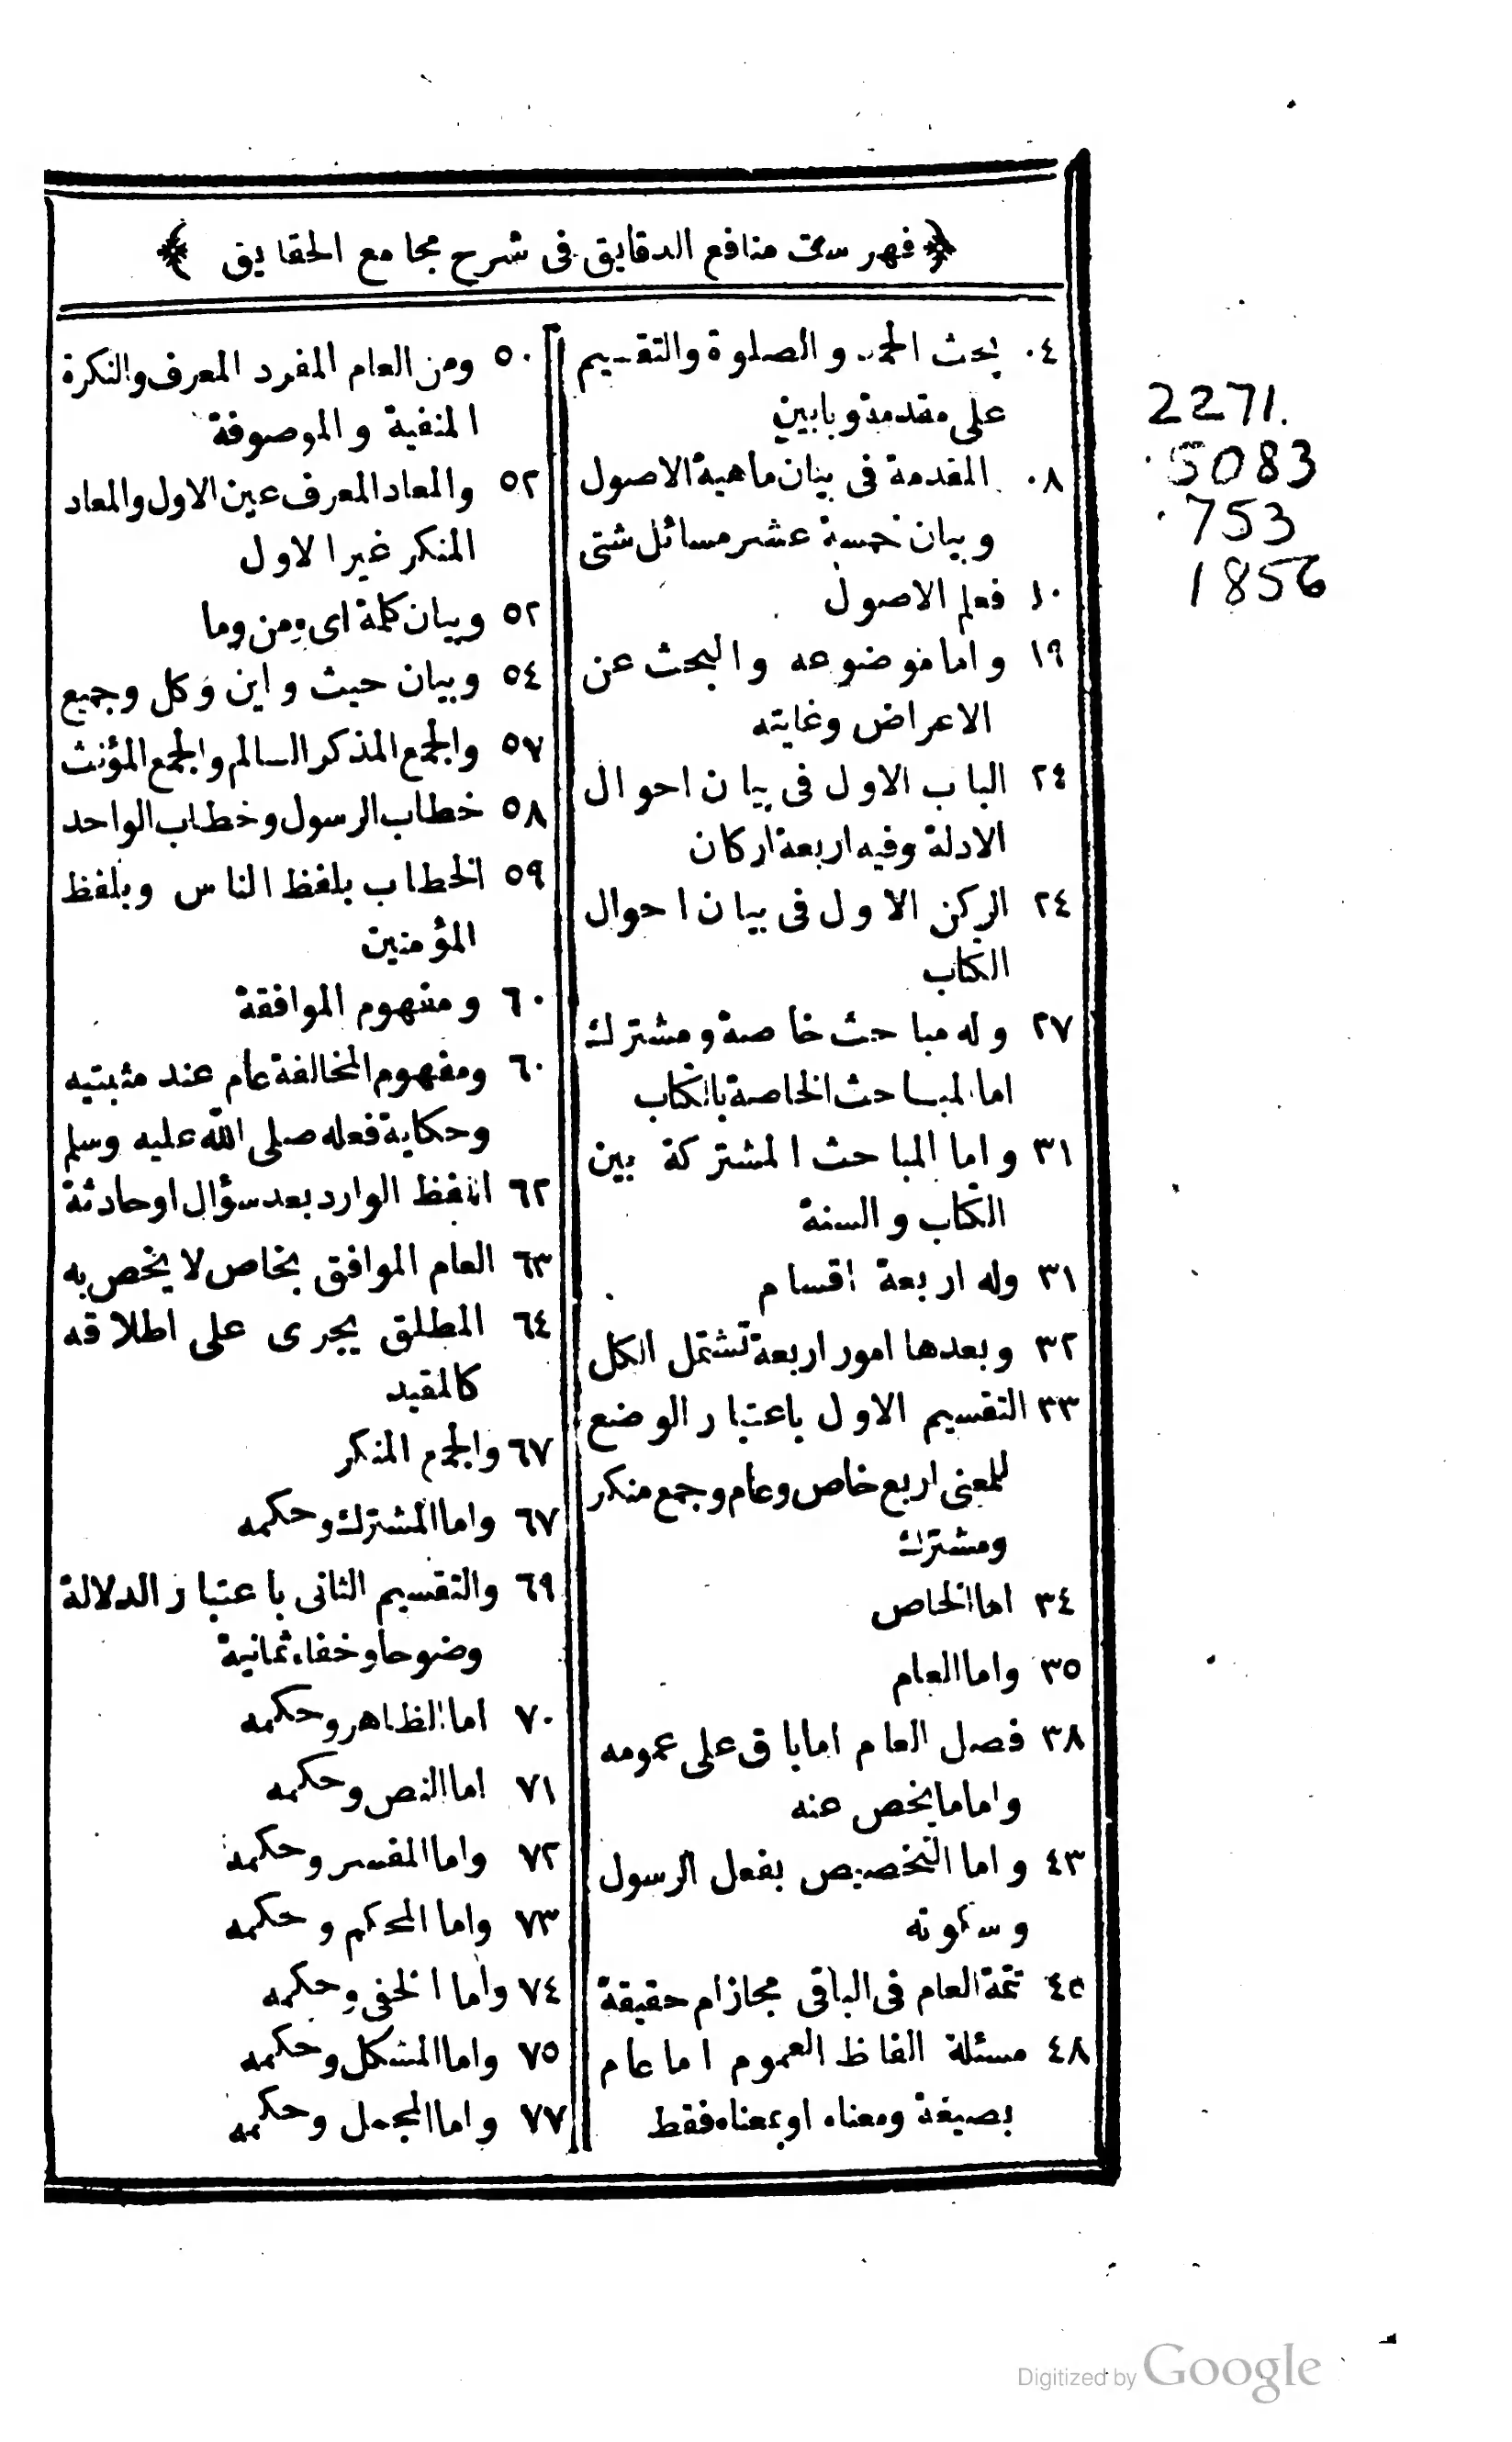 ﴿ فهرست منافع الدقايق فى شرح مجامع الحقايق ﴾
٠٤ بحث الحمد والصلوة والتقسيم
على مقدمة وبابين
٠٨ المقدمة فى بيان ماهية الاصول
وبيان خمسة عشر مسائل شتى
١٠ فعلم الاصول
١٩ واما موضوعه والبحث عن
الاعراض وغايته
٢٤ الباب الاول فى بيان احوال
الادلة وفيه اربعة اركان
٢٤ الركن الاول فى بيان احوال
الكتاب
٢٧ وله مباحث خاصة ومشترك
اما المباحث الخاصة بالكتاب
٣١ واما المباحث المشتركة بين
الكتاب والسنة
٣١ وله اربعة اقسام
٣٢ وبعدها امور اربعة تشتمل الكل
٣٣ التقسيم الاول باعتبار الوضع
للمعنى اربع خاص وعام وجمع منكر
ومشترك
٣٤ اما الخاص
٣٥ واما العام
٣٨ فصل العام اما باق على عمومه
واما ما يخص عنه
٤٣ واما التخصيص بفعل الرسول
وسكوته
٤٥ تتمة العام فى الباقى مجاز ام حقيقة
٤٨ مسئلة الفاظ العموم اما عام
بصيغة ومعناه او بمعناه فقط
٥٠ ومن العام المفرد المعرف والنكرة
المنفية والموصوفة
٥٢ والمعاد المعرف عين الاول والمعاد
المنكر غير الاول
٥٢ وبيان كلمة اى ومن وما
٥٤ وبيان حيث واين وكل وجميع
٥٧ والجمع المذكر السالم والجمع المؤنث
٥٨ خطاب الرسول وخطاب الواحد
٥٩ الخطاب بلفظ الناس وبلفظ
المؤمنين
٦٠ ومفهوم الموافقة
٦٠ ومفهوم المخالفة عام عند مثبتيه
وحكاية فعله صلى الله عليه وسلم
٦٢ اللفظ الوارد بعد سؤال او حادثة
٦٣ العام الموافق بخاص لا يخص به
٦٤ المطلق يجرى على اطلاقه
كالمقيد
٦٧ والجمع المنكر
٦٧ واما المشترك وحكمه
٦٩ والتقسيم الثانى باعتبار الدلالة
وضوحا وخفاء ثمانية
٧٠ اما الظاهر وحكمه
٧١ اما النص وحكمه
٧٢ واما المفسر وحكمه
٧٣ واما المحكم وحكمه
٧٤ واما الخفى وحكمه
٧٥ واما المشكل وحكمه
٧٧ واما المجمل وحكمه
2271.
.5083
.753
1856
Digitized by Google